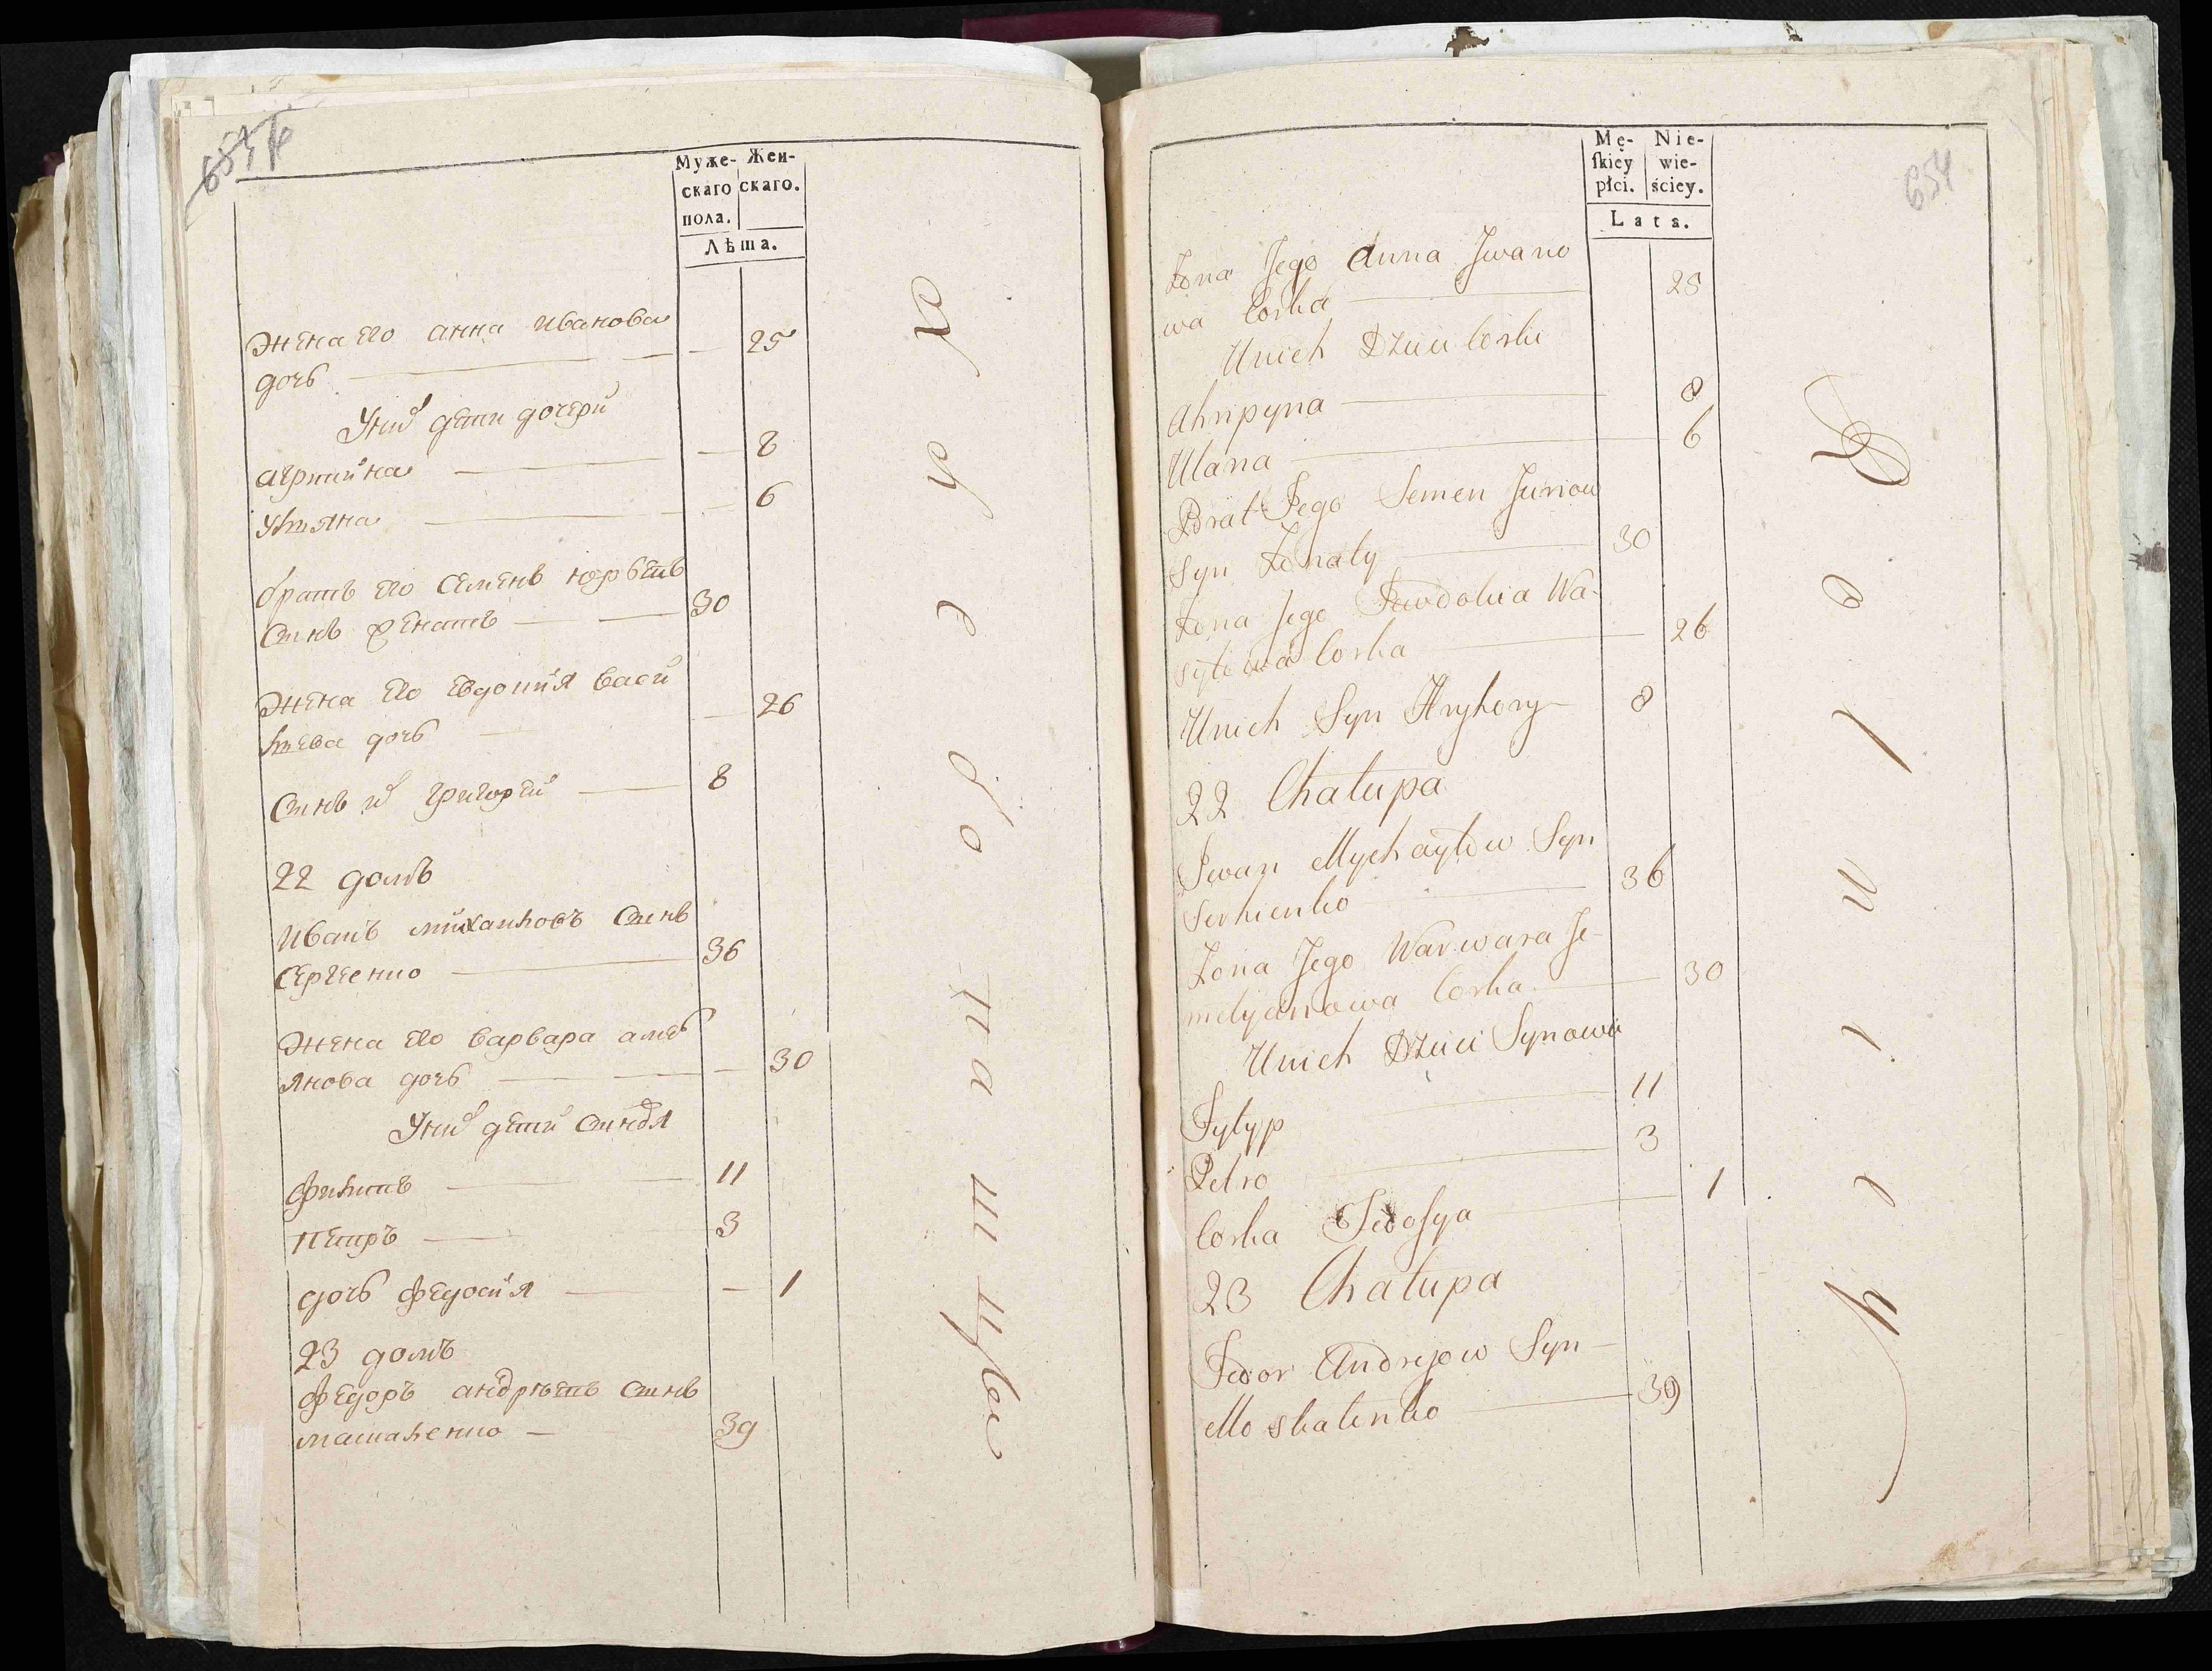 654
Муже-
скаго
пола.
Жен-
скаго.
Лѣта.
жена его анна иванова
дочь — 25
У них дети дочери
агрипина — 8
ульяна — 6
братъ его Семенъ юрьевъ
Сынъ женатъ — 30
жена его Евдокия васи
льева дочь — 26
Сынъ их григорей — 8
22 домъ
иванъ михаиловъ Сынъ
Сергеенко — 36
жена его варвара амел
янова дочь — 30
У них дети Сыновя
филипъ — 11
Петръ — 3
дочь федосия — 1
23 домъ
федоръ андреевъ Сынъ
маскаленко — 39
654
Mę-
skiey
płci.
Nie-
wie-
ściey.
Lata.
Żona Jego Anna Jwano
wa Corka — 25
Unich Dzieci Corki
Ahripyna — 8
Ulana — 6
Brat Jego Semen Juriow
Syn Żonaty — 30
Żona Jego Jewdokia Wa-
sylewa Corka — 26
Unich Syn Hryhory — 8
22 Chałupa
Jwan Mychayłow Syn
Serhienko — 36
Żona Jego Warwara Je-
melyanowa Corka — 30
Unich Dzieci Synowie
Fylyp — 11
Petro — 3
Corka Fedosya — 1
23 Chałupa
Fedor Andrejow Syn
Moskalenko — 39